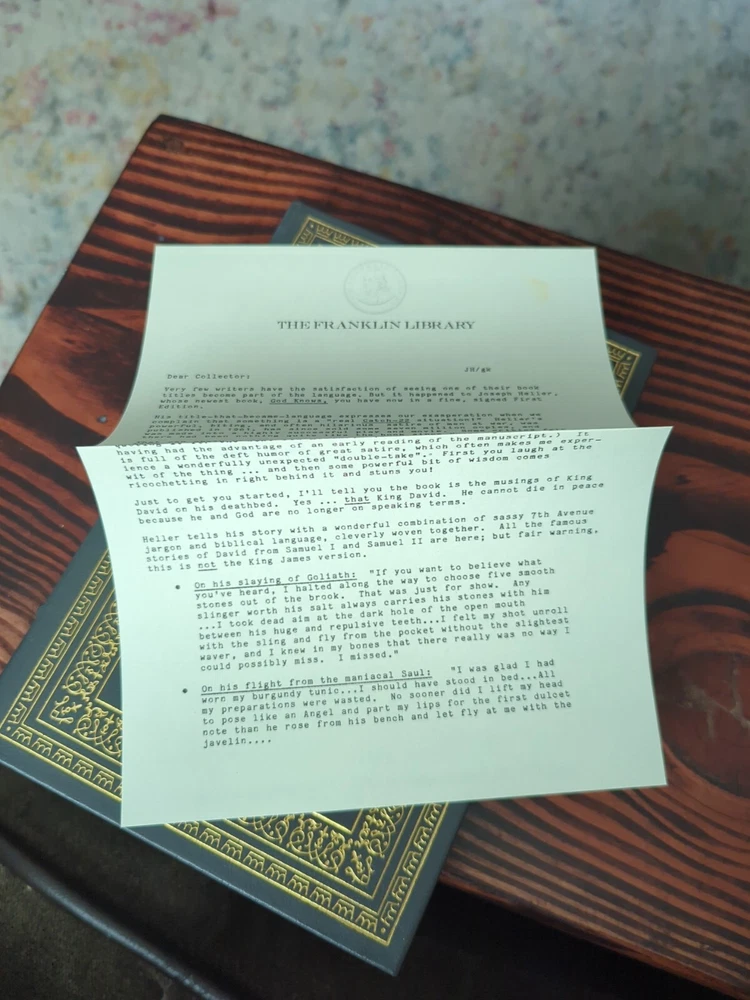 THE FRANKLIN LIBRARY
Dear Collector: JR/gk
Very few writers have the satisfaction of seeing one of their book
titles become part of the language. But it happened to Joseph Heller,
whose newest book, God Knows, you have now in a fine, signed First
Edition.
His title-that-became-language expresses our exasperation when we
complain that something is a
having had the advantage of an early reading of the manuscript.) It
is full of the deft humor of great satire, which often makes me exper-
ience a wonderfully unexpected "double-take". First you laugh at the
wit of the thing ... and then some powerful bit of wisdom comes
ricochetting in right behind it and stuns you!
Just to get you started, I'll tell you the book is the musings of King
David on his deathbed. Yes ... that King David. He cannot die in peace
because he and God are no longer on speaking terms.
Heller tells his story with a wonderful combination of sassy 7th Avenue
jargon and biblical language, cleverly woven together. All the famous
stories of David from Samuel I and Samuel II are here; but fair warning,
this is not the King James version.
• On his slaying of Goliath: "If you want to believe what
you've heard, I halted along the way to choose five smooth
stones out of the brook. That was just for show. Any
slinger worth his salt always carries his stones with him
...I took dead aim at the dark hole of the open mouth
between his huge and repulsive teeth...I felt my shot unroll
with the sling and fly from the pocket without the slightest
waver, and I knew in my bones that there really was no way I
could possibly miss. I missed."
• On his flight from the maniacal Saul: "I was glad I had
worn my burgundy tunic...I should have stood in bed...All
my preparations were wasted. No sooner did I lift my head
to pose like an Angel and part my lips for the first dulcet
note than he rose from his bench and let fly at me with the
javelin....